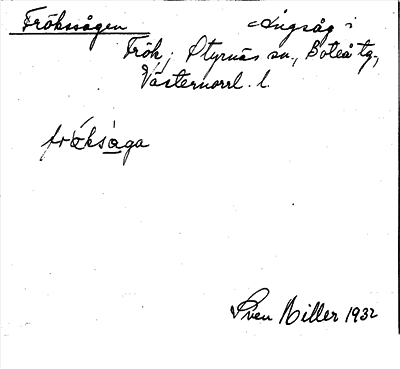 Fröksågen Ångsåg i
Frök, Styrnäs sn., Boteå tg.,
Västernorrl. l.
frö́ksàga
Sven Miller 1932